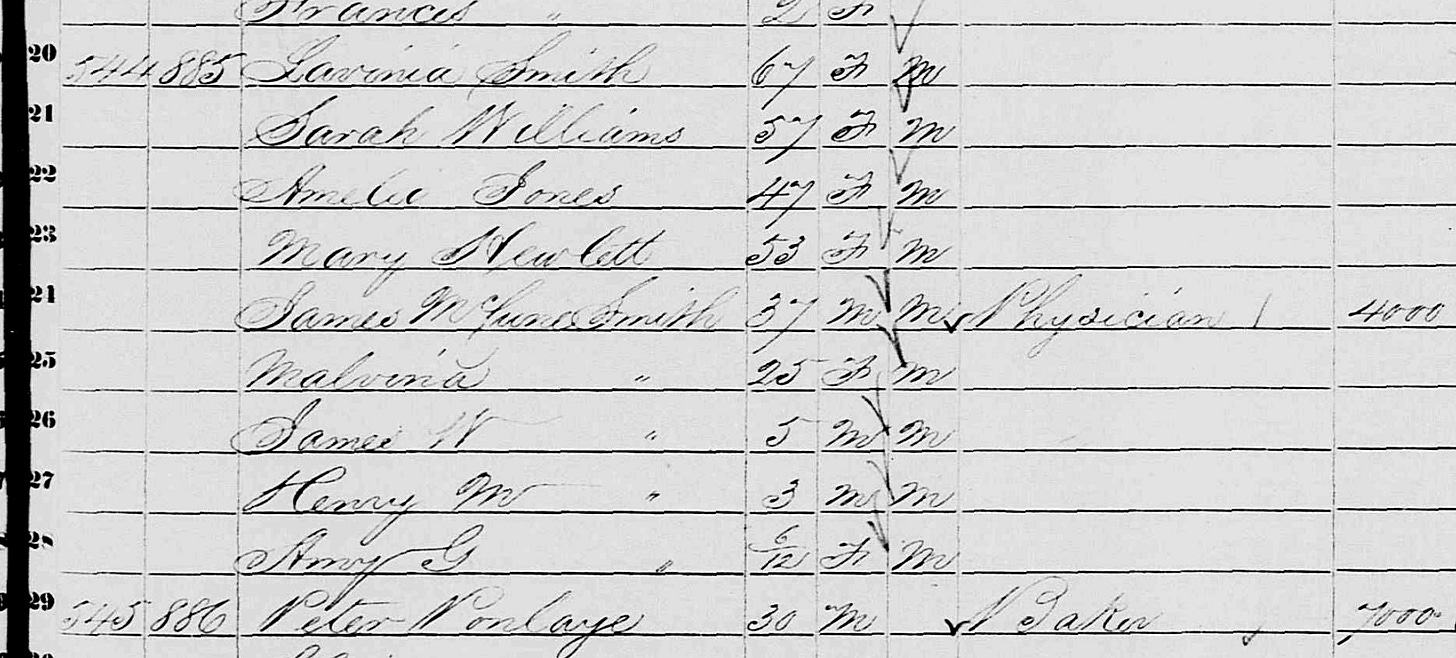 Frances " 2 F
20 544 885 Lavinia Smith 67 F M
21 Sarah Williams 57 F M
22 Amelia Jones 47 F M
23 Mary Hewlett 53 F M
24 James McCune Smith 37 M M Physician 4000
25 Malvina " 25 F M
26 James W " 5 M M
27 Henry M " 3 M M
28 Amy G " 6/12 F M
29 545 886 Peter 30 M Baker 7000